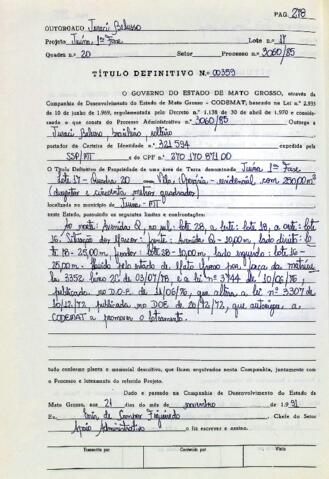 PAG. 278
OUTORGADO Juraci Balusso
Projeto Juína, 1ª Fase Lote nº 17
Quadra nº 20 Setor Processo nº 3060/85
TÍTULO DEFINITIVO N.º 00359
O GOVERNO DO ESTADO DE MATO GROSSO, através da
Companhia de Desenvolvimento do Estado de Mato Grosso - CODEMAT, baseado na Lei n.º 2.935
de 10 de junho de 1969, regulamentada pelo Decreto n.º 1.138 de 30 de abril de 1970 e conside-
rando o que consta do Processo Administrativo n.º 3060/85 Outorga a
Juraci Balusso, brasileiro, solteiro
portador da Carteira de Identidade n.º 321 594
SSP/MT e do CPF nº 270 170 871 00
O Título Definitivo de Propriedade de uma área de Terra denominada Juína 1ª Fase
Lote 17 - Quadra 20 residencial, com 250,00 m²
(duzentos e cincoenta metros quadrados)
localizada no município de Juína - MT
neste Estado, possuindo os seguintes limites e confrontações:
Ao norte: Avenida Q, ao sul: lote 28, a leste: lote 18, a oeste: lote
16. frente: Avenida Q - 10,00m, lado direito: lo
te 18 - 25,00m, fundos: lote 28 - 10,00m, lado esquerdo: lote 16 -
25,00m. pelo estado de Mato Grosso por força da matrícula
nº 3352 de 03/07/78, e a lei nº 3744 de 10/06/76,
publicado no D.O.E. de 11/06/76, que altera a lei nº 3307 de
20/12/72, publicada no DOE de 20/12/72, que autoriza a
CODEMAT a promover o loteamento.
tudo conforme planta e memorial descritivo, que ficam arquivados nesta Companhia, juntamente com
o Processo e loteamento do referido Projeto.
Dado e passado na Companhia de Desenvolvimento do Estado da
Mato Grosso, aos 21 dias do mês de novembro de 1991
Eu, de Campos Figueiredo, Chefe do Setor
Apoio Administrativo o fiz escrever e assino.
Transcrito por Conferido por Visto